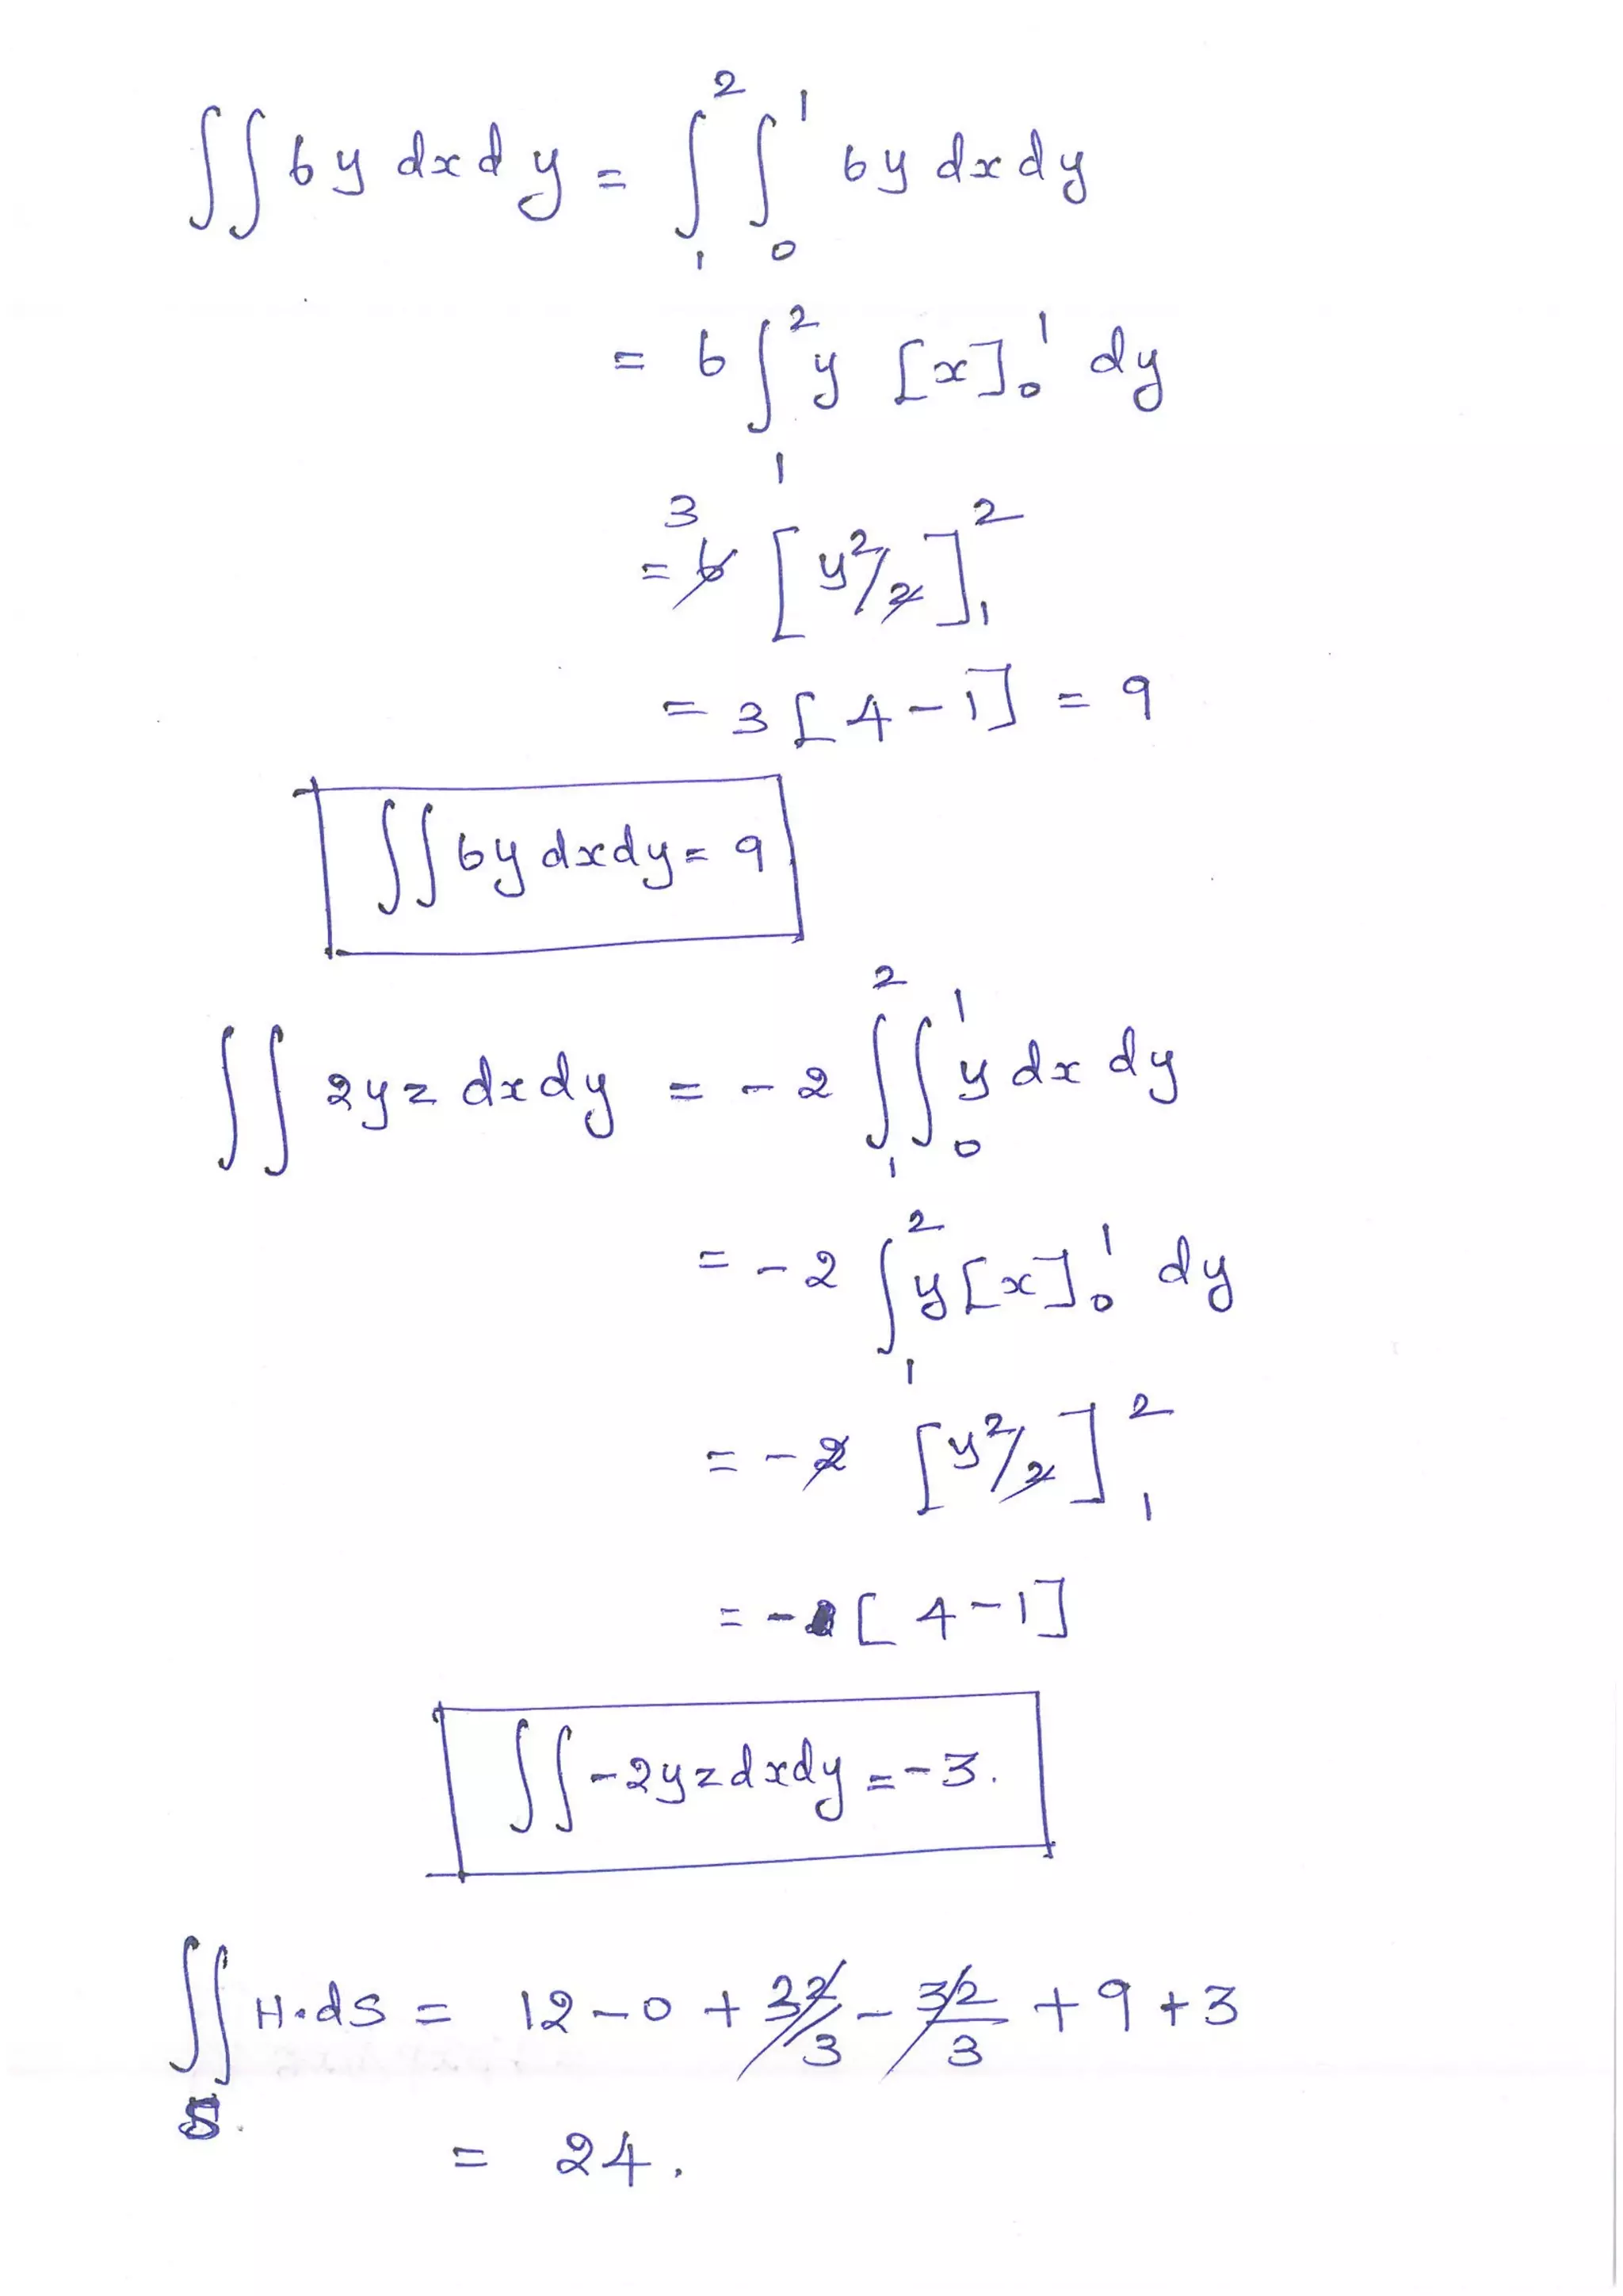 ∫∫ 6y dx dy = ∫₁² ∫₀¹ 6y dx dy
= 6 ∫₁² y [x]₀¹ dy
= 3 6 [y²/2]₁²
= 3 [4 - 1] = 9
∫∫ 6y dx dy = 9
∫∫ 2yz dx dy = -2 ∫₁² ∫₀¹ y dx dy
= -2 ∫₁² y [x]₀¹ dy
= -2 [y²/2]₁²
= - [4 - 1]
∫∫ -2yz dx dy = -3.
∫∫ H.dS = 12 - 0 + 32/3 - 32/3 + 9 + 3
S
= 24.